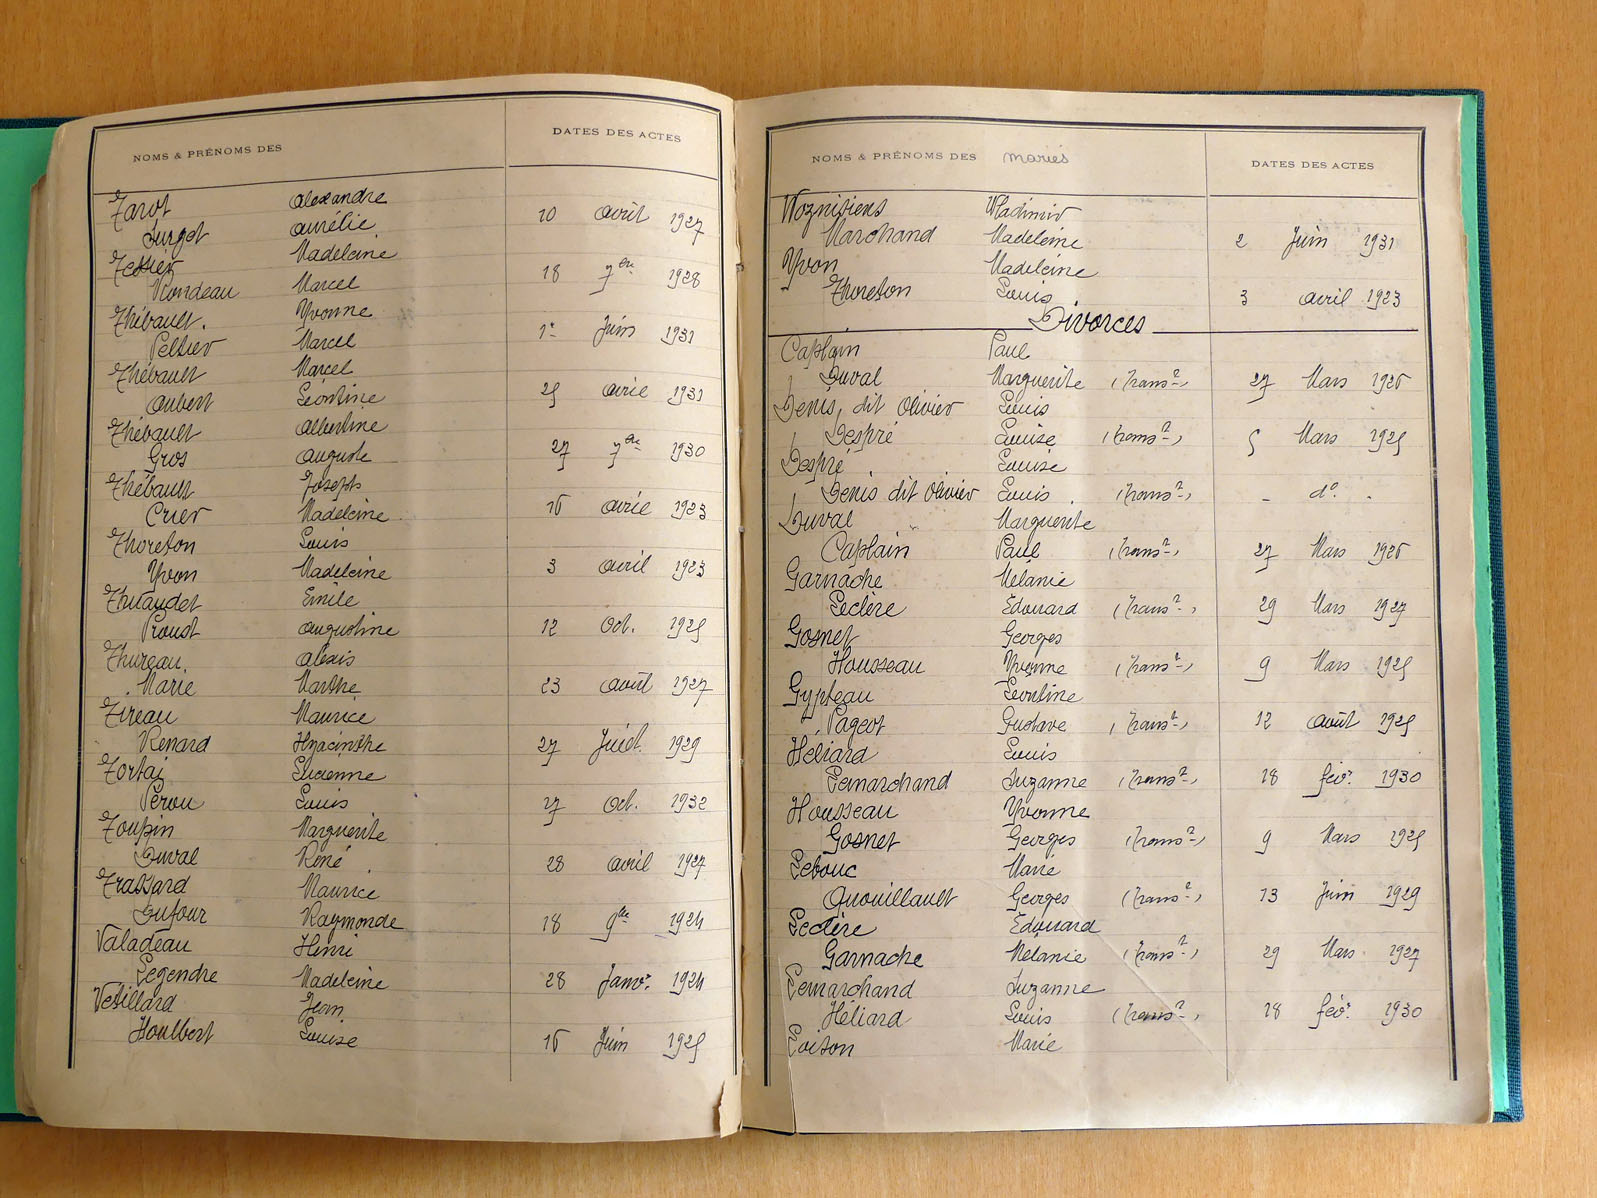 NOMS & PRÉNOMS DES DATES DES ACTES
Tarot Alexandre
Surget Aurélie 10 Août 1927
Tessier Madeleine
Rondeau Marcel 18 7bre 1928
Thibault. Yvonne
Peltier Marcel 1er Juin 1931
Thébault Marcel
Aubert Léontine 25 avril 1931
Thébault Albertine
Gros Auguste 27 7bre 1930
Thébault Joseph
Crier Madeleine 16 avril 1923
Thoreton Louis
Yvon Madeleine 3 avril 1923
Thuaudet Emile
Proust Augustine 12 Oct. 1925
Thureau. Alexis
Marie Marthe 23 août 1927
Tireau Maurice
Renard Hyacinthe 27 Juil. 1929
Tortai Lucienne
Perou Louis 17 Oct. 1932
Toupin Marguerite
Duval René 28 avril 1927
Trassard Maurice
Dufour Raymonde 18 9bre 1924
Valadeau Henri
Legendre Madeleine 28 Janvr. 1924
Vetillard Jean
Houlbert Louise 16 Juin 1925
NOMS & PRÉNOMS DES mariés DATES DES ACTES
Wladimir
Marchand Madeleine 2 Juin 1931
Yvon Madeleine
Thoreton Louis 3 avril 1923
Divorces
Caplain Paul
Duval Marguerite (trans°n) 27 Mars 1926
Denis, dit Olivier Louis
Despré Louise (trans°n) 5 Mars 1925
Despré Louise
Denis dit Olivier Louis (trans°n) - d°. -
Duval Marguerite
Caplain Paul (trans°n) 27 Mars 1926
Garnache Mélanie
Leclère Edouard (trans°n) 29 Mars 1927
Gosnet Georges
Housseau Yvonne (trans°n) 9 Mars 1925
Gypteau Léontine
Pageot Gustave (trans°n) 12 août 1925
Héliard Louis
Lemarchand Suzanne (trans°n) 18 févr. 1930
Housseau Yvonne
Gosnet Georges (trans°n) 9 Mars 1925
Lebouc Marie
Quouillault Georges (trans°n) 13 Juin 1929
Leclère Edouard
Garnache Mélanie (trans°n) 29 Mars 1927
Lemarchand Suzanne
Héliard Louis (trans°n) 18 févr. 1930
Loison Marie